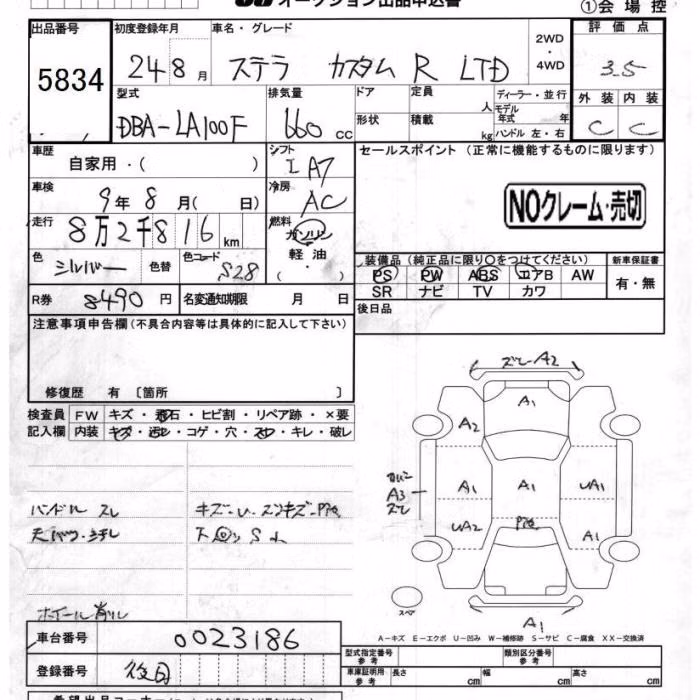 オークション出品申込書
①会場控
出品番号 初度登録年月 車名・グレード 評価点
5834 24 8月 ステラ カスタム R LTD 2WD・4WD 3.5
型式 排気量 ドア 定員 人 ディーラー・並行 外装 内装
DBA-LA100F 660 cc 形状 積載 kg モデル年式 年 ハンドル 左・右 C C
車歴 自家用・( ) シフト I A7 セールスポイント (正常に機能するものに限ります)
車検 9年 8月( 日) 冷房 AC NOクレーム・売切
走行 8万2千816 km 燃料 ガソリン 軽油 ( )
色 シルバー 色替 色コード S28
装備品 (純正品に限り○をつけてください) 新車保証書
PS PW ABS エアB AW 有・無
SR ナビ TV カワ
R券 8490円 名変通知期限 月 日 後日品
注意事項申告欄(不具合内容等は具体的に記入して下さい)
修復歴 有 〔箇所 〕
検査員 FW キズ・飛石・ヒビ割・リペア跡・×要
記入欄 内装 キズ・汚レ・コゲ・穴・スレ・キレ・破レ
ズレ-A2
A1
A2
A3 ズレ A1 A1 UA1
UA2 A1
ハンドル スレ
ホイール削レ
スペア
A1
A-キズ E-エクボ U-凹み W-補修跡 S-サビ C-腐食 XX-交換済
車台番号 0023186 型式指定番号 参考 類別区分番号 参考
登録番号 後日 車庫証明用 参考 長さ cm 幅 cm 高さ cm